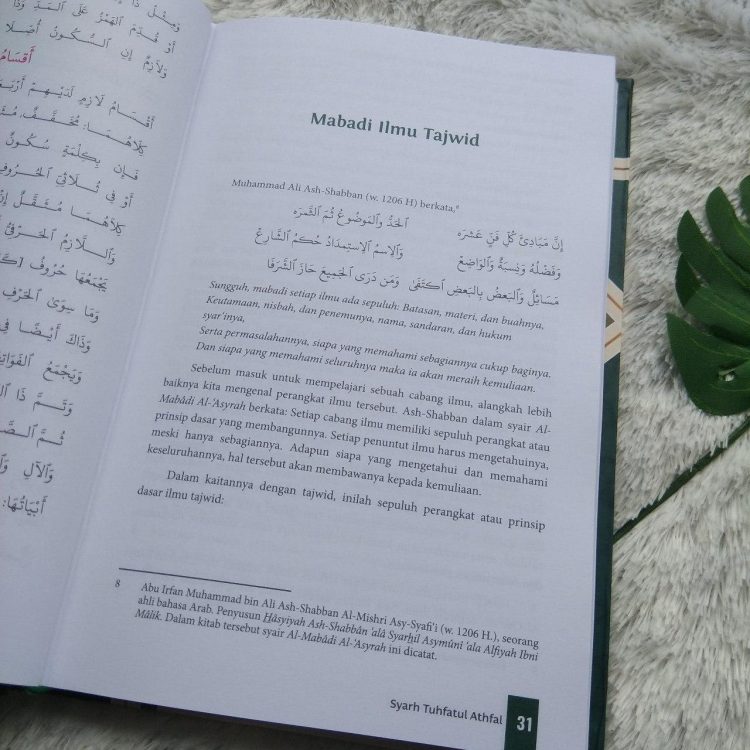 وَمِثْلُ ذَا
أَوْ قُدِّمَ الْهَمْزُ عَلَى الْمَدِّ وَذَا
وَلَازِمٌ إِنِ السُّكُونُ أُصِّلَا
أَقْسَامُ
أَقْسَامُ لَازِمٍ لَدَيْهِمْ أَرْبَعَ
كِلَاهُمَا: مُخَفَّفٌ، مُثَقَّ
فَإِنْ بِكِلْمَةٍ سُكُونٌ
أَوْ فِي ثُلَاثِيِّ الْحُرُوفِ
كِلَاهُمَا مُثَقَّلٌ إِنْ
وَاللَّازِمُ الْحَرْفِيُّ
يَجْمَعُهَا حُرُوفُ
وَمَا سِوَى الْحَرْفِ
وَذَاكَ أَيْضًا فِي
وَيَجْمَعُ الْفَوَاتِ
وَتَمَّ ذَا ال
ثُمَّ الصَّ
وَالْآلِ
أَبْيَاتُهَا:
Mabadi Ilmu Tajwid
Muhammad Ali Ash-Shabban (w. 1206 H) berkata,⁸
إِنَّ مَبَادِئَ كُلِّ فَنٍّ عَشَرَه الْحَدُّ وَالْمَوْضُوعُ ثُمَّ الثَّمَرَه
وَفَضْلُهُ وَنِسْبَةٌ وَالْوَاضِعْ وَالِاسْمُ الِاسْتِمْدَادُ حُكْمُ الشَّارِعْ
مَسَائِلٌ وَالْبَعْضُ بِالْبَعْضِ اكْتَفَى وَمَنْ دَرَى الْجَمِيعَ حَازَ الشَّرَفَا
Sungguh, mabadi setiap ilmu ada sepuluh: Batasan, materi, dan buahnya,
Keutamaan, nisbah, dan penemunya, nama, sandaran, dan hukum
syar'inya,
Serta permasalahannya, siapa yang memahami sebagiannya cukup baginya.
Dan siapa yang memahami seluruhnya maka ia akan meraih kemuliaan.
Sebelum masuk untuk mempelajari sebuah cabang ilmu, alangkah lebih
baiknya kita mengenal perangkat ilmu tersebut. Ash-Shabban dalam syair Al-
Mabâdi Al-'Asyrah berkata: Setiap cabang ilmu memiliki sepuluh perangkat atau
prinsip dasar yang membangunnya. Setiap penuntut ilmu harus mengetahuinya,
meski hanya sebagiannya. Adapun siapa yang mengetahui dan memahami
keseluruhannya, hal tersebut akan membawanya kepada kemuliaan.
Dalam kaitannya dengan tajwid, inilah sepuluh perangkat atau prinsip
dasar ilmu tajwid:
8 Abu Irfan Muhammad bin Ali Ash-Shabban Al-Mishri Asy-Syafi'i (w. 1206 H.), seorang
ahli bahasa Arab. Penyusun Hâsyiyah Ash-Shabbân 'alâ Syarhil Asymûnî 'ala Alfiyah Ibni
Mâlik. Dalam kitab tersebut syair Al-Mabâdi Al-'Asyrah ini dicatat.
Syarh Tuhfatul Athfal 31